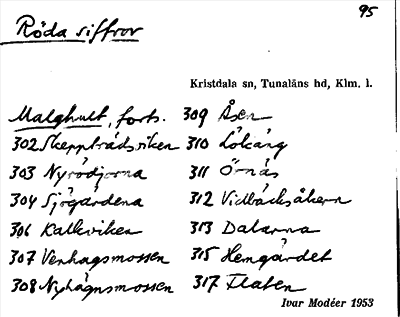 95
Röda siffror
Kristdala sn, Tunaläns hd, Klm. l.
Malghult, forts.
302 Skeppträdsviken
303 Nyrödjorna
304 Sjögärdena
306 Kalkviken
307 Venhagsmossen
308 Nyhagnsmossen
309 Åsen
310 Lökäng
311 Örnäs
312 Vidbäcksåkern
313 Dalarna
315 Hemgärdet
317 Flaten
Ivar Modéer 1953